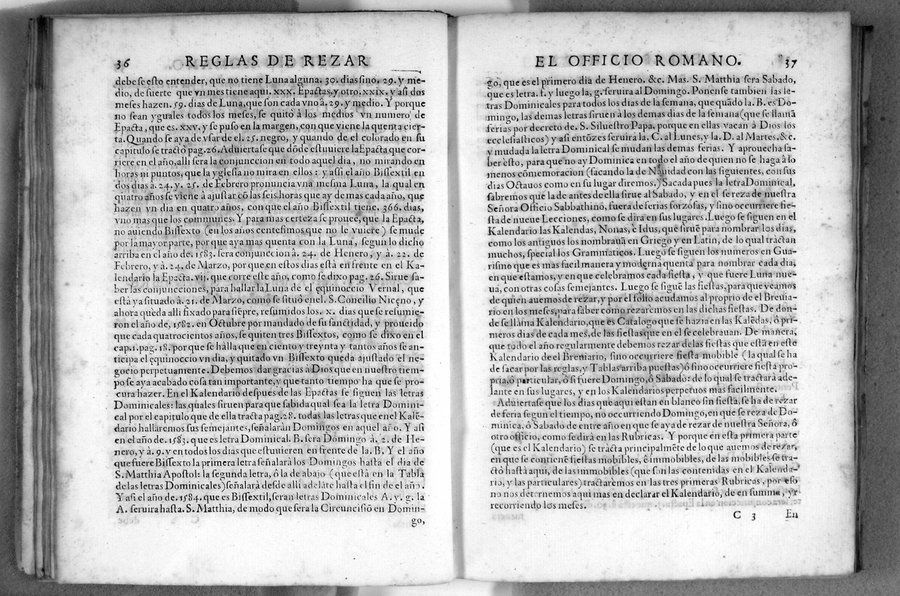 36 REGLAS DE REZAR
debe se esto entender, que no tiene Luna alguna. 30. dias sino. 29. y me-
dio, de suerte que vn mes tiene aqui. xxx. Epactas, y otro. xxix. y asi dos
meses hazen. 59. dias de Luna, que son cada vno à. 29. y medio. Y porque
no sean yguales todos los meses, se quitó à los medios vn numero de
Epacta, que es. xxv. y se puso en la margen, con que viene la quenta cier-
ta. Quando se aya de vsar de el. 25. negro, y quando de el colorado en su
capitulo se tractó pag. 26. Aduiertase que dòde estuuiere la Epacta que cor-
riere en el año, alli sera la conjunccion en todo aquel dia, no mirando en
horas ni puntos, que la yglesia no mira en ellos: y assi el año Bissextil en
dos dias à. 24. y. 25. de Febrero pronuncia vna mesma Luna, la qual en
quatro años se viene à ajustar cò las seis horas que ay de mas cada año, que
hazen vn dia en quatro años, con que el año Bissextil tiene. 366. dias,
vno mas que los communes. Y para mas certeza se prouee, que la Epacta,
no auiendo Bissexto (en los años centesimos que no le vuiere) se mude
por la mayor parte, por que aya mas quenta con la Luna, segun lo dicho
arriba en el de. 1583. sera conjunccion à. 24. de Henero, y à. 22. de
Febrero, y à. 24. de Marzo, por que en estos dias està en frente en el Ka-
lendario la Epacta. vij. que corre este año, como se dixo pag. 26. Sirue sa-
ber las conjuncciones, para hallar la Luna de el equinoccio Vernal, que
està ya situado à. 21. de Março, como se situó en el. S. Concilio Niceno, y
ahora queda alli fixado para siēpre, resumidos los. x. dias que se resumie-
ron el año de. 1582. en Octubre por mandado de su sanctidad, y proueido
que cada quatrocientos años, se quiten tres Bissextos, como se dixo en el
cap. 1. pag. 18. por que se halla que en ciento y treynta y tantos años se an-
ticipa el equinoccio vn dia, y quitado vn Bissexto queda ajustado el ne-
gocio perpetuamente. Debemos dar gracias à Dios que en nuestro tiem-
po se aya acabado cosa tan importante, y que tanto tiempo ha que se pro-
cura hazer. En el Kalendario despues de las Epactas se siguen las letras
Dominicales: las quales siruen para que sabida qual sea la letra Domini-
cal por el capitulo que de ella tracta pag. 28. todas las letras que en el Kalē-
dario hallaremos sus semejantes, señalarán Domingos en aquel año. Y asi
en el año de. 1583. que es letra Dominical. B. sera Domingo à. 2. de He-
nero, y à. 9. y en todos los dias que estuuieren en frente de la. B. Y el año
que fuere Bissexto la primera letra señalará los Domingos hasta el dia de
S. Matthia Apostol: la segunda letra, ò la de abajo (que està en la Tabla
de las letras Dominicales) señalará desde alli adelāte hasta el fin de el año.
Y asi el año de. 1584. que es Bissextil, seran letras Dominicales A. y. g. la
A. seruira hasta. S. Matthia, de modo que sera la Circuncisió en Domin-
go,
EL OFFICIO ROMANO. 37
go, que es el primero dia de Henero. &c. Mas. S. Matthia sera Sabado,
que es letra. f. y luego la. g. seruira al Domingo. Ponense tambien las le-
tras Dominicales para todos los dias de la semana, que quādo la. B. es Do-
mingo, las demas letras siruen à los demas dias de la semana (que se llamā
ferias por decreto de. S. Siluestro Papa, porque en ellas vacan à Dios los
ecclesiasticos) y asi entōzes seruira la. C. al Lunes, y la. D. al Martes, &c.
y mudada la letra Dominical se mudan las demas ferias. Y aprouecha sa-
ber esto, para que no ay Dominica en todo el año de quien no se haga à lo
menos cōmemoracion (sacando la de Nauidad con las siguientes, con sus
dias Octauos como en su lugar diremos.) Sacada pues la letra Dominical,
sabremos que la de antes de ella sirue al Sabado, y en el se reza de nuestra
Señora Officio Sabbathinò, fuera de ferias forzosas, y sino occurriere fie-
sta de nueue Lecciones, como se dira en sus lugares. Luego se siguen en el
Kalendario las Kalendas, Nonas, è Idus, que siruē para nombrar los dias,
como los antiguos los nombrauā en Griego y en Latin, de lo qual tractan
muchos, special los Grammaticos. Luego se siguen los numeros en Gua-
rismo que es mas facil manera y moderna quenta para nombrar cada dia,
en que estamos, y en que celebramos cada fiesta, y que fuere Luna nue-
ua, con otras cosas semejantes. Luego se siguē las fiestas, para que veamos
de quien auemos de rezar, y por el folio acudamos al proprio de el Breuia-
rio en los meses, para saber como rezaremos en las dichas fiestas. De don-
de se llāma Kalendario, que es Catalogo que se hazia en las Kalēdas, ò pri-
meros dias de cada mes, de las fiestas que en el se celebrauan. De manera,
que todo el año regularmente debemos rezar de las fiestas que està en este
Kalendario de el Breuiario, sino occurriere fiesta mobible (la qual se ha
de sacar por las reglas, y Tablas arriba puestas) ò sino occurriere fiesta pro-
pria, ò particular, ò si fuere Domingo, ò Sabado: de lo qual se tractará ade-
lante en sus lugares, y en los Kalendarios perpetuos mas facilmente.
Aduiertase que los dias que aqui estan en blanco sin fiesta, se ha de rezar
de feria segun el tiempo, no occurriendo Domingo, en que se reza de Do-
minica. ò Sabado de entre año en que se aya de rezar de nuestra Señora, ò
otro officio, como se dirá en las Rubricas. Y porque en esta primera parte
(que es el Kalendario) se tracta principalmēte de lo que auemos de rezar,
en que se contienē fiestas mobibles, è immobibles, de las mobibles se tra-
ctó hasta aqui, de las immobibles (que son las contenidas en el Kalenda-
rio, y las particulares) tractaremos en las tres primeras Rubricas, por eso
no nos detornemos aqui mas en declarar el Kalendario, de en summa, yr
recorriendo los meses.
C 3 En